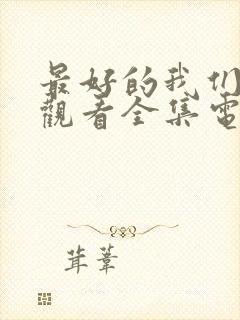 最好的我们
觀看全集電
茸葦